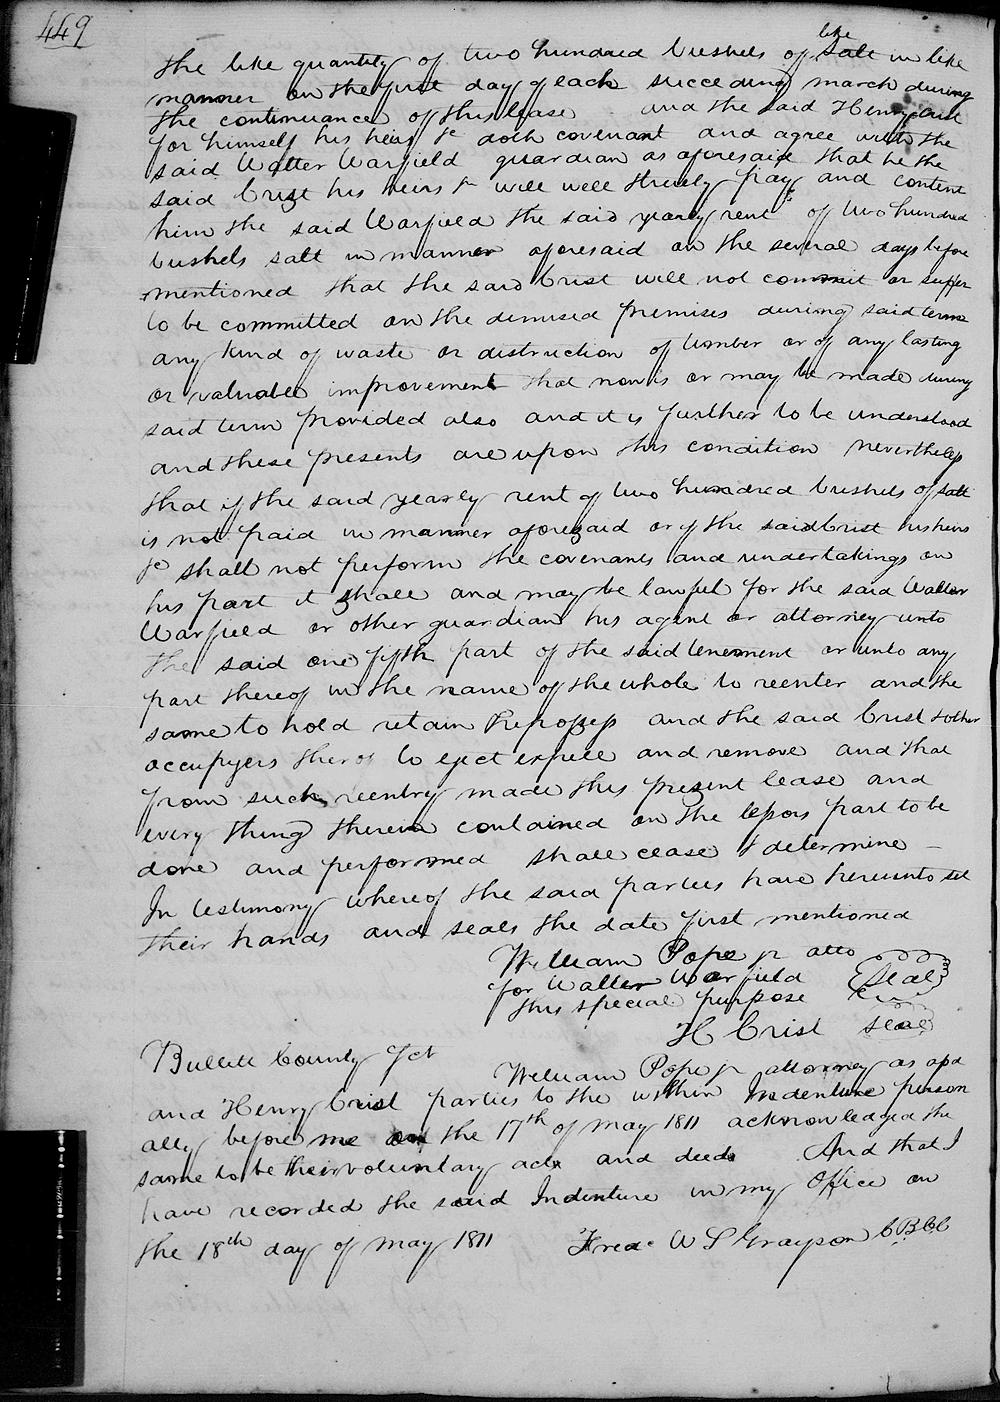 449
the like quantity of two hundred bushels of like Salt in like
manner on the first day of each succeeding march during
the continuance of this lease and the said Henry Crist
for himself his heirs &c doth covenant and agree with the
said Walter Warfield guardian as aforesaid that he the
said Crist his heirs &c will well & truly pay and content
him the said Warfield the said yearly rent of two hundred
bushels salt in manner aforesaid on the several days before
mentioned that the said Crist will not commit or suffer
to be committed on the demised premises during said term
any kind of waste or distruction of timber or of any lasting
or valuable improvement that now is or may be made during
said term provided also and it is further to be understood
and these presents are upon this condition nevertheless
that if the said yearly rent of two hundred bushels of salt
is not paid in manner aforesaid or if the said Crist his heirs
&c shall not perform the covenants and undertakings on
his part it shall and may be lawful for the said Walter
Warfield or other guardian his agent or attorney unto
the said one fifth part of the said tenement or unto any
part thereof in the name of the whole to reenter and the
same to hold retain & repossess and the said Crist & other
occupyers thereof to eject expell and remove and that
from such reentry made this present lease and
every thing therein contained on the lessors part to be
done and performed shall cease & determine –
In testimony whereof the said parties have hereunto set
their hands and seals the date first mentioned
William Pope jr atto
for Walter Warfield Seal
this special purpose
H Crist seal
Bullitt County Sct
William Pope jr attorney as afd
and Henry Crist parties to the within Indenture person
ally before me on the 17th of may 1811 acknowledged the
same to be their voluntary acts and deeds And that I
have recorded the said Indenture in my Office on
the 18th day of may 1811 Fred. W S Grayson C.B.C.C